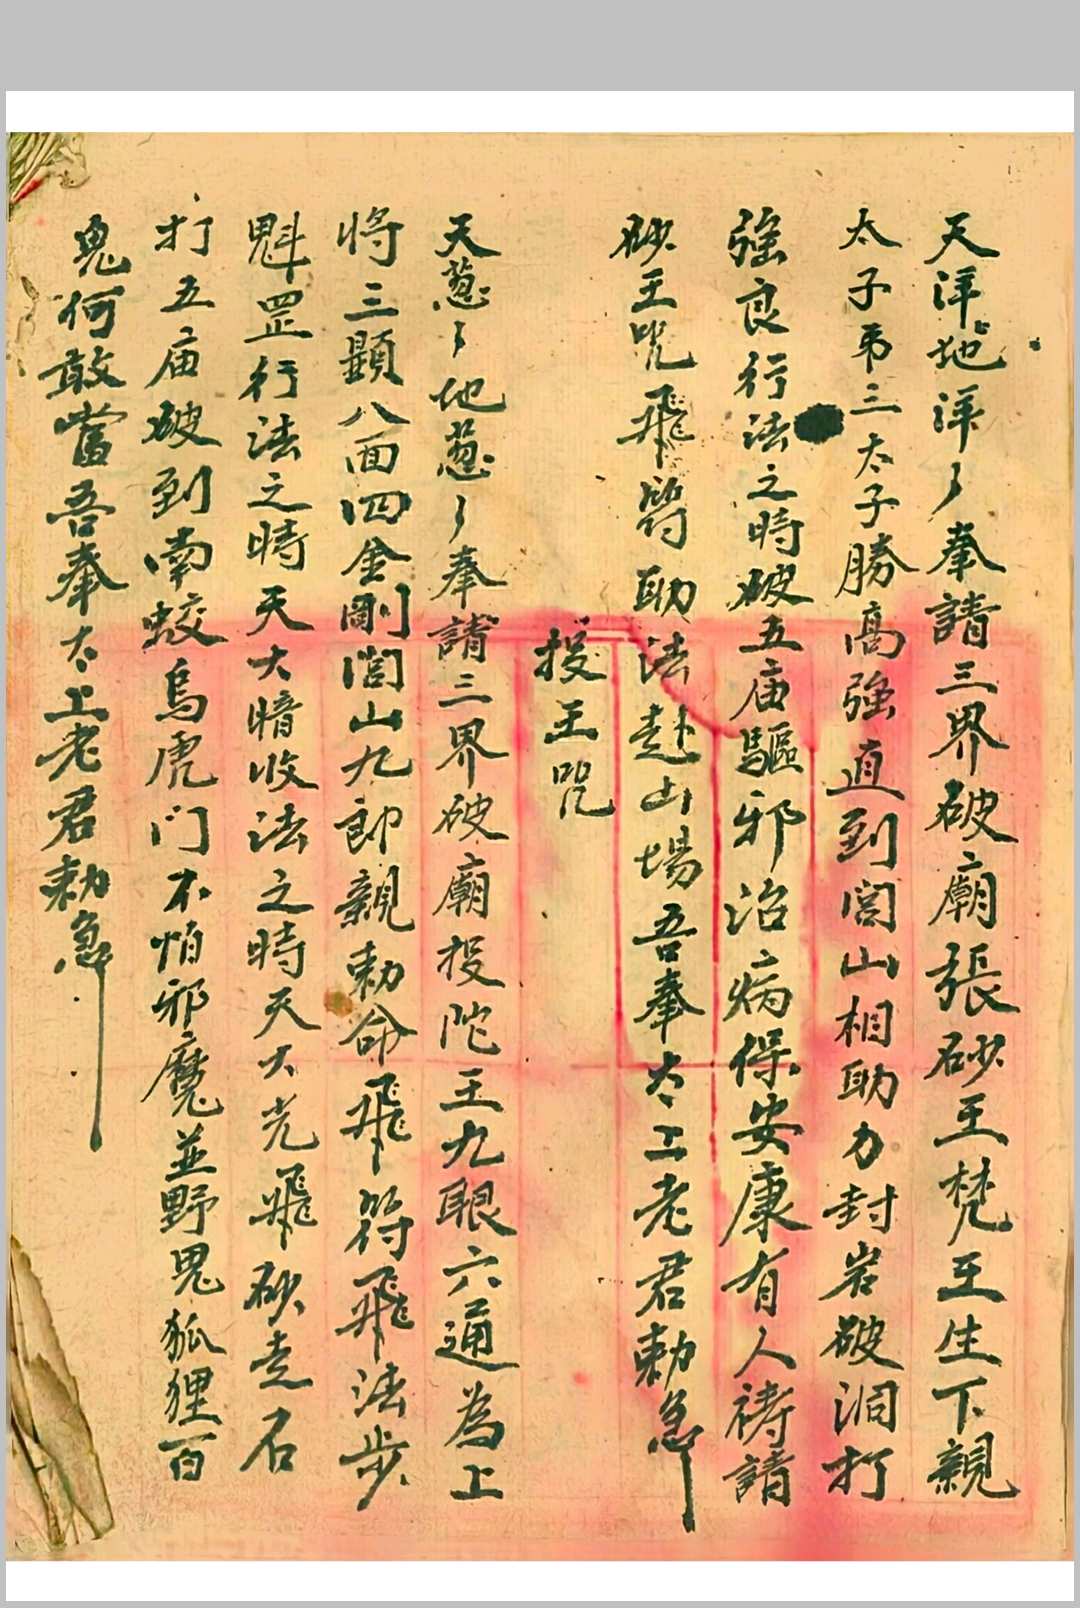 天洋地洋々奉請三界破廟張砂王梵王生下親
太子弟三太子勝高強直到閭山相助力封岩破洞打
強良行法之時破五庙驅邪治病保安康有人禱請
砂王咒飛符助法赴山場吾奉太上老君勅急
投王咒
天葱々地葱々奉請三界破廟投陀王九眼六通為上
將三顕八面四金剛閭山九郎親勅命飛符飛法步
魁罡行法之時天大暗收法之時天大光飛砂走石
打五庙破到南蛟烏虎门不怕邪魔並野鬼狐狸百
鬼何敢當吾奉太上老君勅急